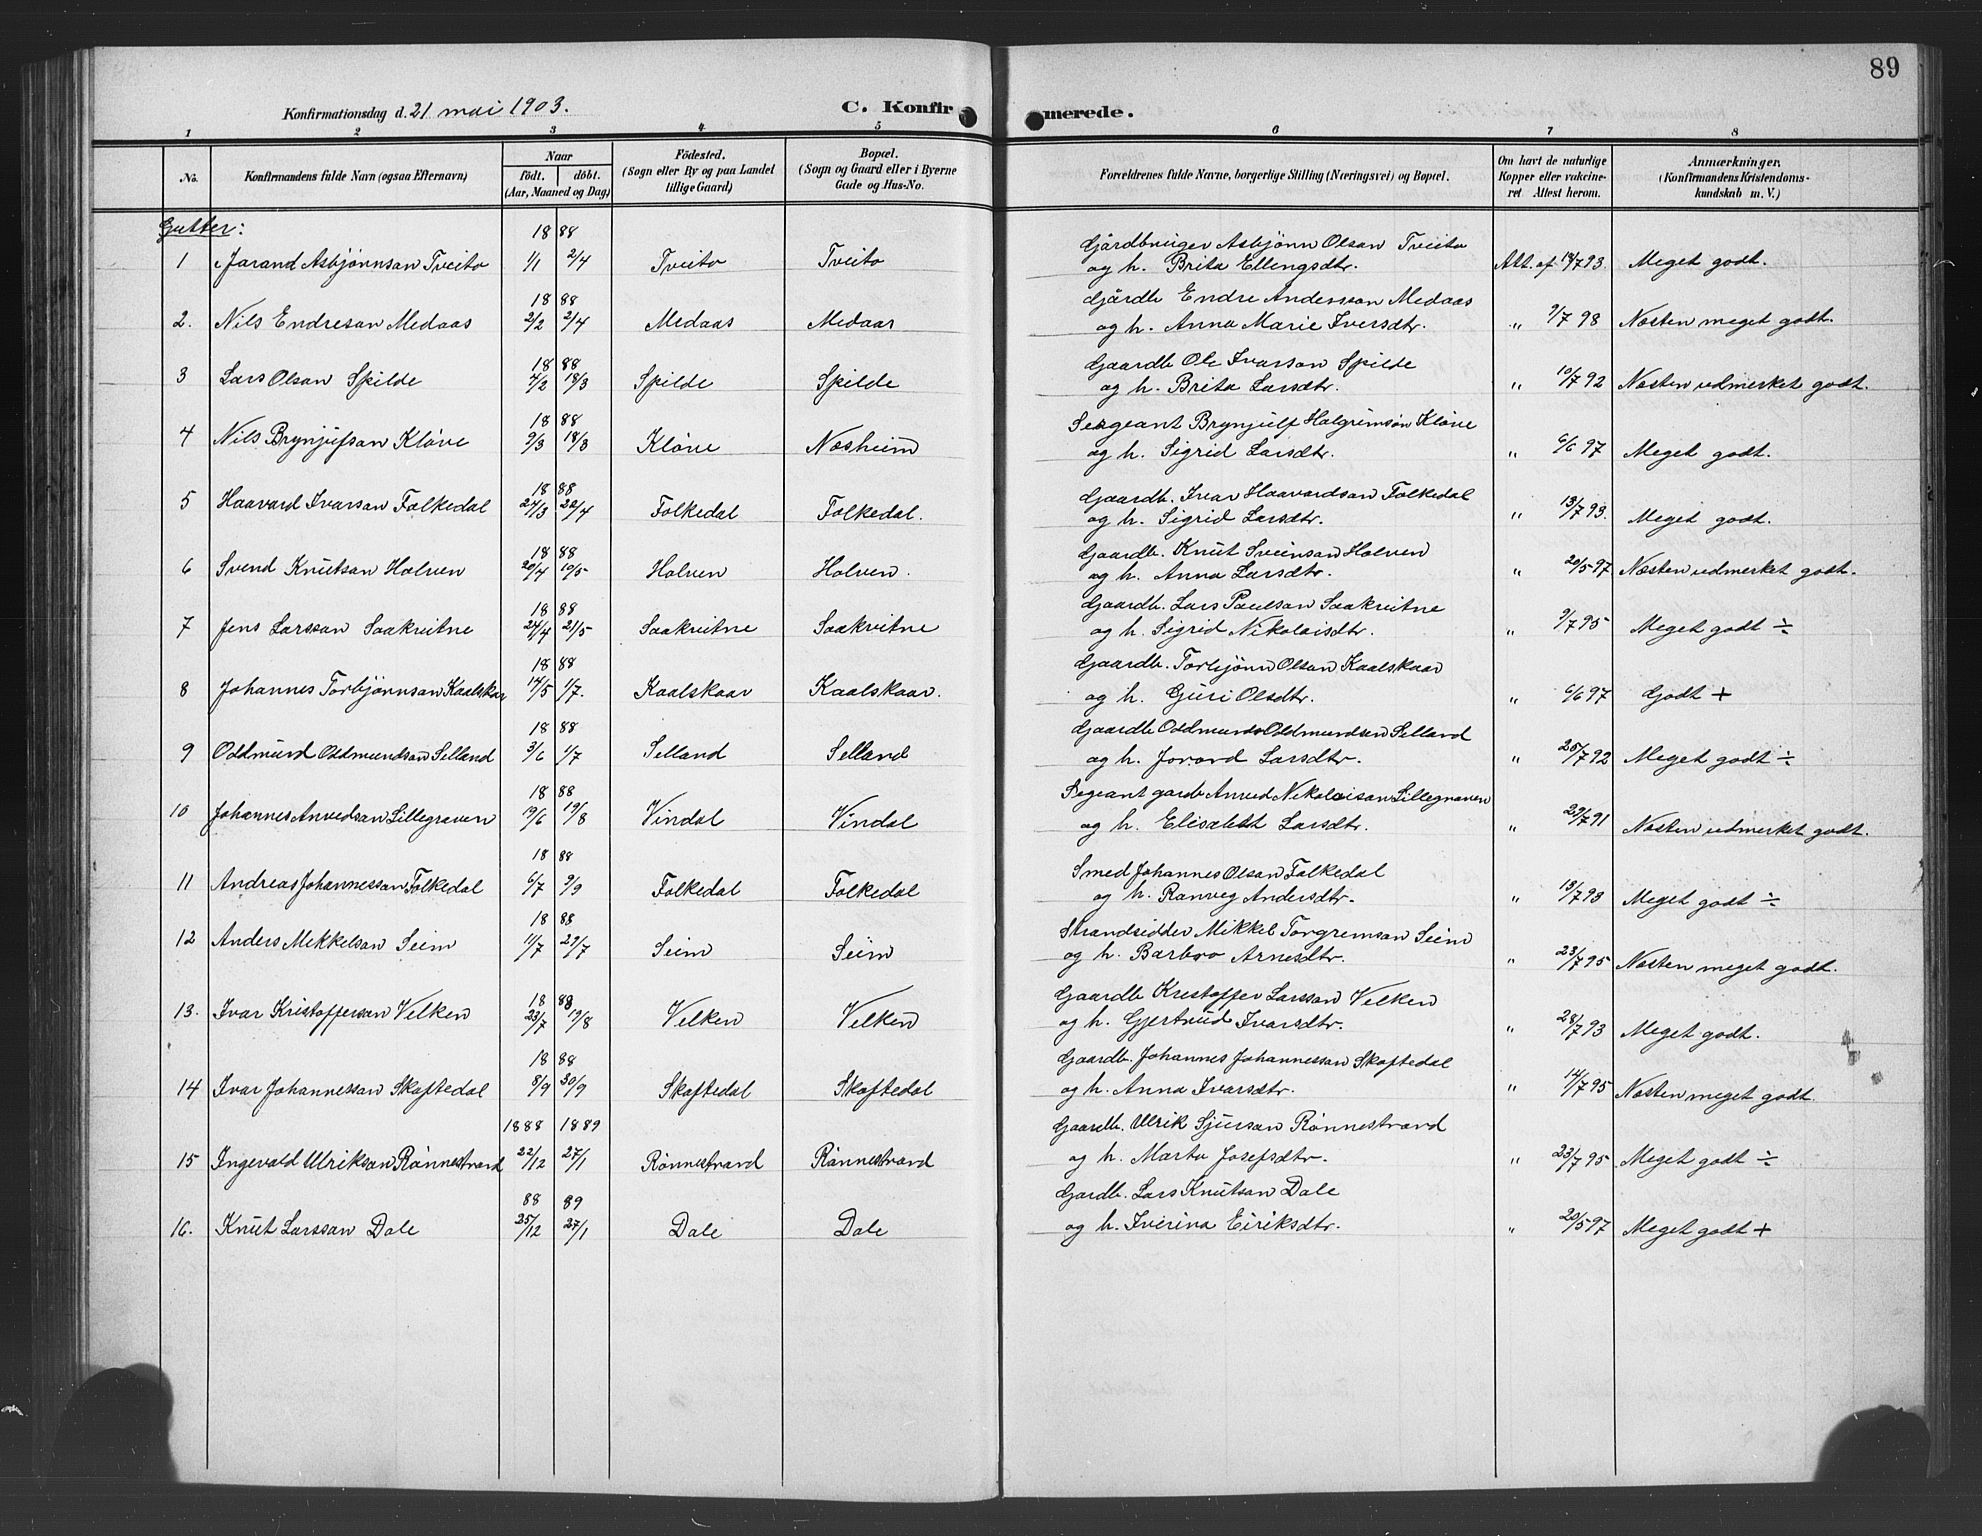 89
Konfirmationsdag d. 21 mai 1903. C. Konfirmerede.
1 2 3 4 5 6 7 8
No. Konfirmandens fulde Navn (ogsaa Efternavn) Naar födt. döbt. (Aar, Maaned og Dag) Födested. (Sogn eller By og paa Landet tillige Gaard) Bopæl. (Sogn og Gaard eller i Byerne Gade og Hus-No. Forældrenes fulde Navne, borgerlige Stilling (Næringsvei) og Bopæl. Om havt de naturlige Kopper eller vakcineret. Attest herom. Anmærkninger. (Konfirmandens Kristendomskundskab m. V.)
Gutter:
18 88 Gårdbruger Asbjönn Olsan Tveito
1 Jarand Asbjönnsan Tveito 1/1 2/4 Tveito Tveito og h. Brita Ellengsdtr. Att. af 18/7 93. Meget godt.
18 88 Gårdb Endre Anderssan Medaas
2. Nils Endresan Medaas 2/2 2/4 Medaas Medaas og h. Anna Marie Iversdtr. " 9/7 98 Næsten meget godt.
18 88 Gaardb Ole Ivarsan Spilde
3 Lars Olsan Spilde 4/2 18/3 Spilde Spilde og h. Brita Larsdtr. " 10/7 92 Næsten udmerket godt.
18 88 Sergeant Brynjulf Halgrimsön Klöve
4 Nils Brynjufsan Klöve 9/3 18/3 Klöve Næsheim og h. Sigrid Larsdtr. " 6/6 97 Meget godt.
18 88 Gaardb. Ivar Haavardsan Folkedal
5 Haavard Ivarsan Folkedal 24/3 22/4 Folkedal Folkedal. og h. Sigrid Larsdtr. " 13/7 93. Meget godt.
18 88 Gaardb. Knut Sveinsan Holven
6 Svend Knutsan Holven 20/4 10/5 Holven Holven. og h. Anna Larsdtr. " 20/5 97 Næsten udmerket godt.
18 88 Gaardb. Lars Paulsan Saakvitne
7 Jens Larssan Saakvitne 24/4 21/5 Saakvitne Saakvitne og h. Sigrid Nikolaisdtr. " 9/7 95 Meget godt ÷
18 88 Gaardb. Torbjönn Olsan Kaalskaar
8 Johannes Torbjönnsan Kaalskar 14/5 1/7. Kaalskaar Kaalskaar. og h. Guri Olsdtr. " 6/6 97 Godt +
18 88 Gaardb Oddmund Oddmundsan Selland
9 Oddmund Oddmundsan Selland 3/6 1/7 Selland Selland og h. Jorand Larsdtr. " 25/7 92 Meget godt ÷
18 88 Segeant gardb Anved Nikolaisan Lillegraven
10 Johannes Anvedsan Lillegraven 19/6 19/8 Vindal Vindal og h. Elisabet Larsdtr. " 29/7 91 Næsten udmerket godt.
18 88 Smed Johannes Olsan Folkedal
11 Andreas Johannessan Folkedal 6/7 9/9 Folkedal Folkedal og h. Ranveg Andersdtr. " 13/7 93 Meget godt ÷
18 88 Strandsidder Mikkel Torgremsan Seim
12 Anders Mekkelsan Seim 11/7 29/7 Seim Seim og h. Barbro Arnesdtr. " 23/7 95 Næsten meget godt.
18 88 Gaardb Krestoffer Larssan Velken
13. Ivar Kristoffersan Velken 23/7 19/8 Velken Velken og h. Gjertrud Ivarsdtr. " 28/7 93 Meget godt.
18 88 Gaardb. Johannes Johannessan Skaftedal
14 Ivar Johannessan Skaftedal 8/9 30/9 Skaftedal Skaftedal og h. Anna Ivarsdtr. " 14/7 95 Næsten meget godt.
1888 1889 Gaardb. Ulrik Sjursan Rönnestrand
15 Ingevald Ulriksan Rönnestrand 22/12 27/1 Rönnestrand Rönnestrand og h. Marta Josefsdtr. " 23/7 95 Meget godt ÷
88 89 Gardb. Lars Knutsan Dale
16. Knut Larssan Dale 25/12 27/1 Dale Dale og h. Iverina Eiriksdtr. " 20/5 97 Meget godt +